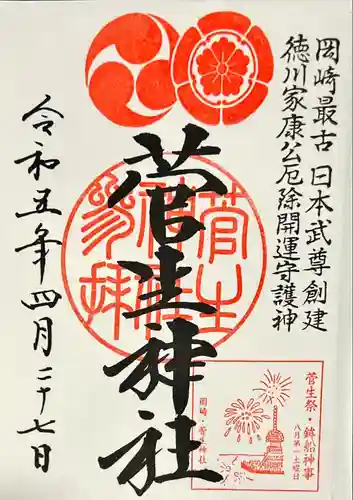 岡崎最古 日本武尊創建
徳川家康公厄除開運守護神
菅生神社
菅生神社参拝
令和五年四月二十七日
菅生祭・鉾船神事
八月第一土曜日
岡崎・菅生神社